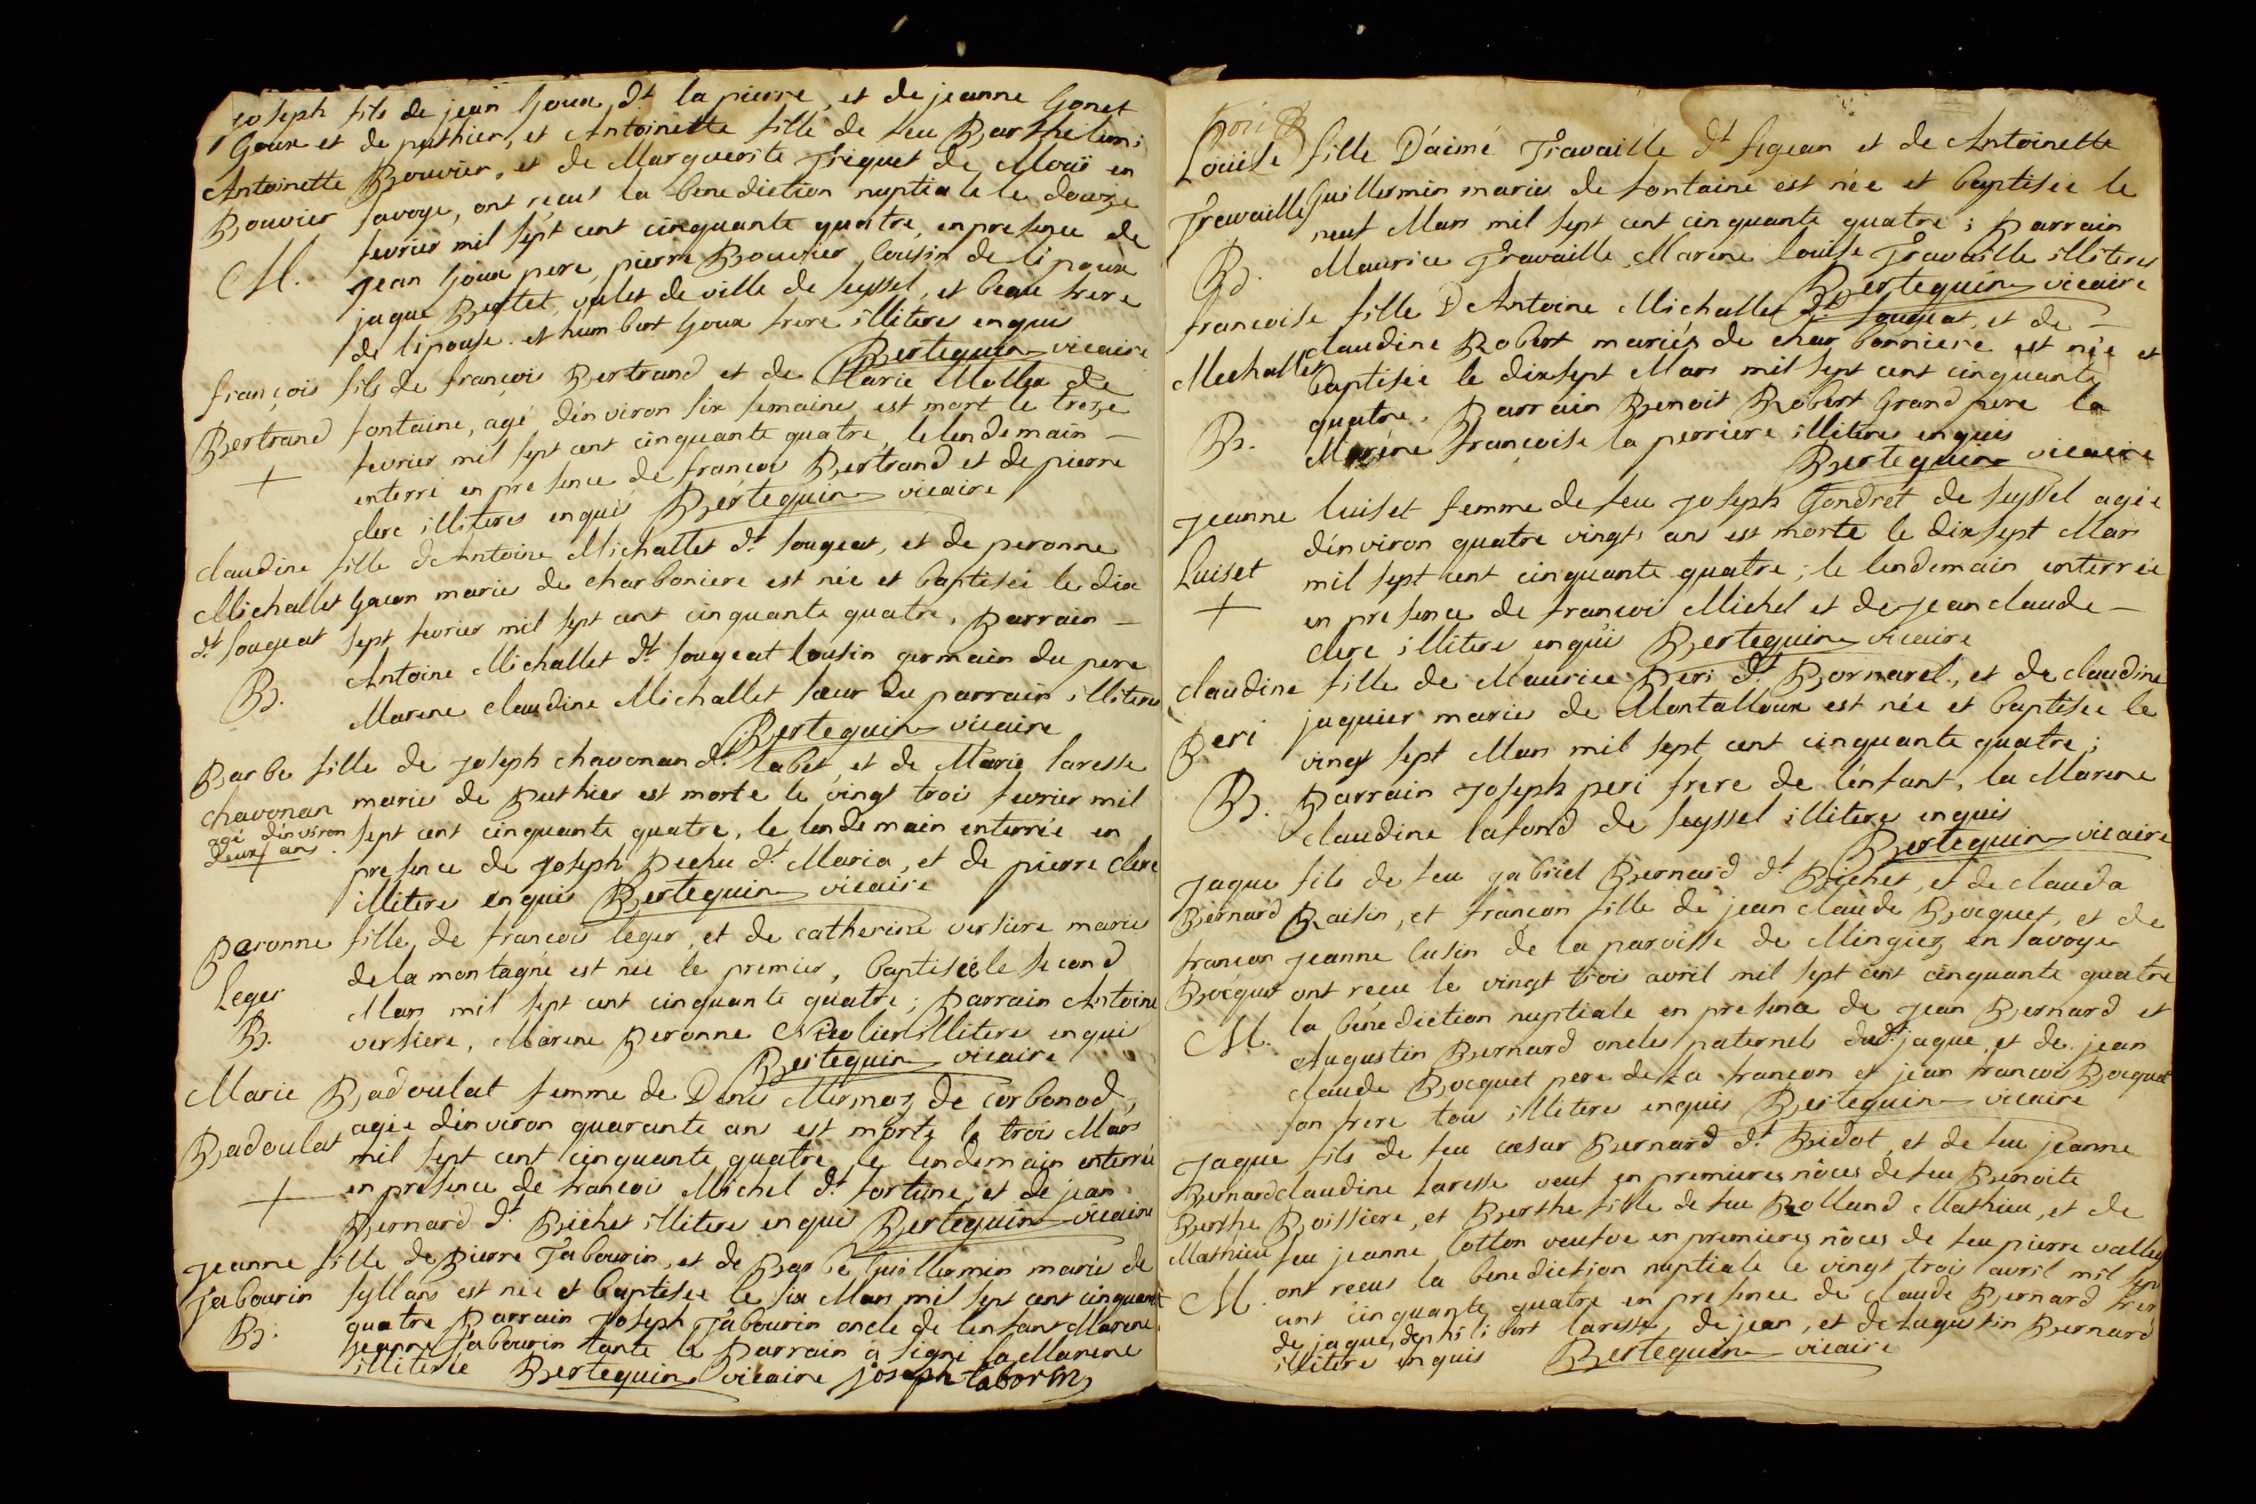 Joseph fils de jean Goux dt la pierre, et de jeanne Gonet
Goux et de puthier, et Antoinette fille de feu Barthelemi
Antoinette Bouvier, et de Marguerite friquet de Mouï en
Bouvier savoye, ont reçus la benediction nuptiale le douze
fevrier mil sept cent cinquante quatre, en presence de
M. jean Goux pere, pierre Bouvier cousin de lipouse
jaque Bertet, valet de ville de seyssel, et beau frere
de lipouse. et humbert Goux frere illiteres enquis
Bertequin vicaire
françois fils de françois Bertrand et de Marie Mollex de
Bertrand fontaine, agé d'environ six semaines est mort le treze
fevrier mil sept cent cinquante quatre, le lendemain –
+ enterré en presence de françois Bertrand et de pierre
clerc illiteres enquis Bertequin vicaire
claudine fille d'Antoine Michallet dt. sougeat, et de peronne
Michallet Gacon mariés de charboniere est née et baptisée le dix
dt. sougeat sept fevrier mil sept cent cinquante quatre, parrain –
B. Antoine Michallet dt. sougeat cousin germain du pere
Marene claudine Michallet sœur du parrain illiteres
Bertequin vicaire
Barbe fille de joseph chavonan dt. labet, et de Marie laresse
chavonan mariés de Puthier est morte le vingt trois fevrier mil
agé d'environ deux ans. sept cent cinquante quatre, le lendemain enterrée en
presence de joseph Pechu dt. Maria, et de pierre clerc
illiteres enquis Bertequin vicaire
peronne fille de francois leger, et de catherine versiere mariés
Leger de la montagne est née le premier, baptisée le second
Mars mil sept cent cinquante quatre; parrain Antoine
B. versiere, Marene peronne Nicolier illiteres enquis
Bertequin vicaire
Marie Badoulat femme de Denis Mermoz de corbonod,
Badoulat agée d'environ quarante ans est morte le trois Mars
mil sept cent cinquante quatre, le lendemain enterrée
+ en presence de francois Michel dt. fortune, et de jean
Bernard dt. Bichet illiteres enquis Bertequin vicaire
jeanne fille de pierre Tabourin, et de Barbe Guillermin mariés de
jabourin syllans est née et baptisée le six Mars mil sept cent cinquante
B. quatre Parrain joseph Tabourin oncle de lenfant Marene
jeanne Tabourin tante le Parrain a signé la Marene
illiterée Bertequin vicaire joseph taborin
Louise fille D'aimé Travaille dt figean et de Antoinette
Travaille Guillermin mariés de fontaine est née et baptisée le
neuf Mars mil sept cent cinquante quatre; parrain
B. Maurice Travaille, Marene louise Travaille illiteres
Bertequin vicaire
francoise fille D'Antoine Michallet dt sougeat, et de –
Michallet claudine Robert mariés de charbonniere est née et
baptisée le dixsept Mars mil sept cent cinquante
B. quatre. Parrain Benoit Robert Grand pere la
Marene francoise la perriere illiteres enquis
Bertequin vicaire
jeanne luiset femme de feu joseph Gondret de seyssel agée
d'environ quatre vingts ans est morte le dixsept Mars
Luiset mil sept cent cinquante quatre; le lendemain enterrée
+ en presence de francois Michel et de jean claude –
clerc illiteres enquis Bertequin vicaire
claudine fille de Maurice Peri dt. Bornarel, et de claudine
Peri jaquier mariés de Montalloux est née et baptisée le
vingt sept Mars mil sept cent cinquante quatre;
B. Parrain joseph peri frere de l'enfant, la Marene
claudine lafond de seyssel illiteres enquis
Bertequin vicaire
jaque fils de feu gabriel Bernard dt Bichet, et de clauda
Bernard Raisin, et françon fille de jean claude Bocquet, et de
francon jeanne cusin de la paroisse de Mingiez en savoye
Bocquet ont reçu le vingt trois avril mil sept cent cinquante quatre
M. la bénédiction nuptiale en presence de jean Bernard et
Augustin Bernard oncles paternels dudt. jaque, et de jean
claude Bocquet pere de la francon et jean francois Bocquet
son frere tous illiteres enquis Bertequin vicaire
jaque fils de feu cæsar Bernard dt. Bidot, et de feu jeanne
Bernard claudine laresse veuf en premieres nôces de feu Benoite
Berthe Boissiere, et Berthe fille de feu Rolland Mathieu, et de
Mathieu feu jeanne cotton veufve en premieres nôces de feu pierre vallet
M. ont reçus la benediction nuptiale le vingt trois avril mil sept
cent cinquante quatre en presence de claude Bernard frere
de jaque, de philibert laresse, de jean, et de augustin Bernard
illiteres enquis Bertequin vicaire